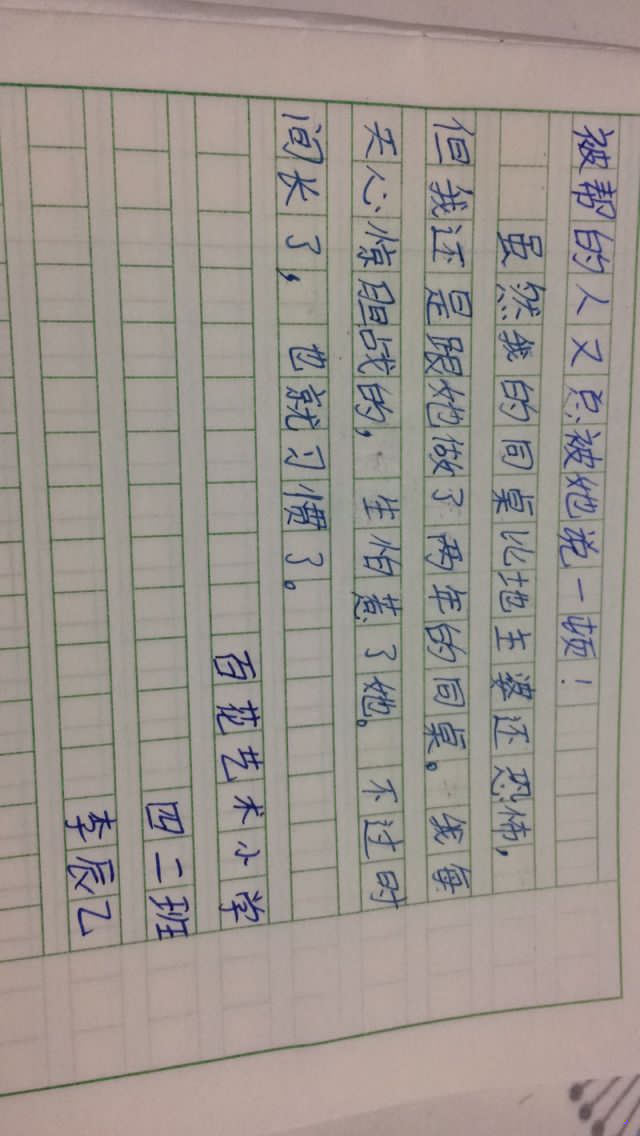 被帮的人又总被她说一顿！
虽然我的同桌比地主婆还恐怖，
但我还是跟她做了两年的同桌。我每
天心惊胆战的，生怕惹了她。不过时
间长了，也就习惯了。
百花艺术小学
四二班
李辰乙